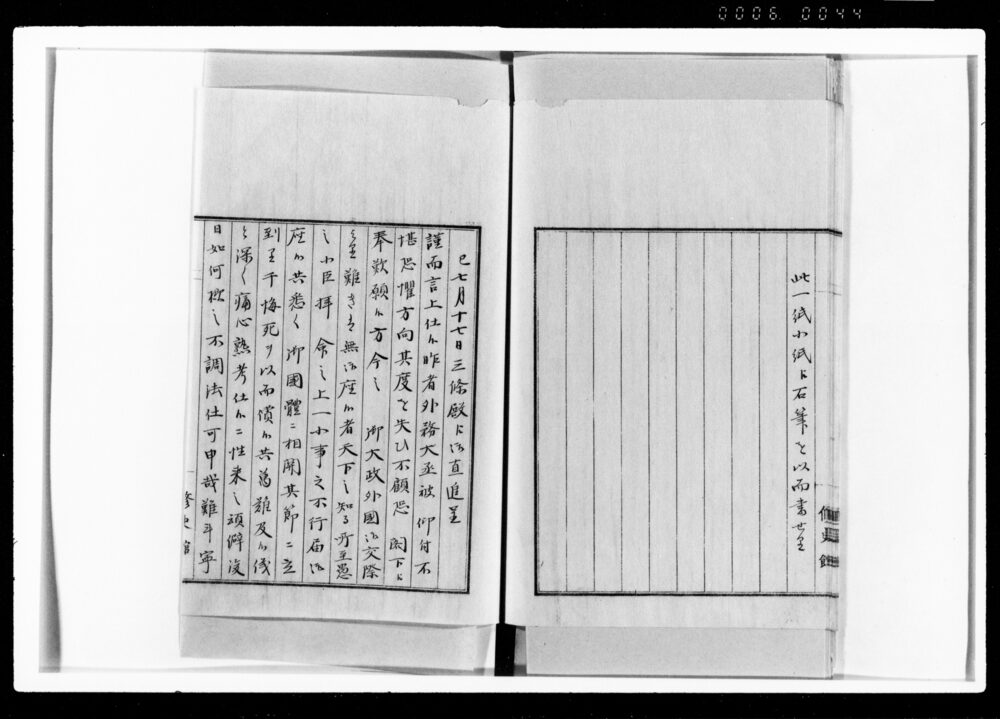 0006 0044
此一紙小紙ニ石筆を以而書
修史館
巳七月十七日三條殿ニ御直進呈
謹而言上仕候昨者外務大丞被 仰付不
堪恐懼方向其度を失ひ不顧恐 閣下ニ
奉歎願候方今之 御大政外国御交際
難き者無御座候者天下之知る所至愚
之小臣拝 命之上一小事之不行届御
座候共悉く 御國體ニ相関其節ニ立
到里千悔死ヲ以而償候共為難及候儀
と深く痛心熟考仕候ニ性来之頑僻後
日如何様之不調法仕可申哉難斗寧
修史館